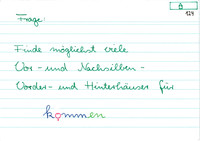 124
Frage:
Finde möglichst viele
Vor- und Nachsilben -
Vorder- und Hinterhäuser für
kommen